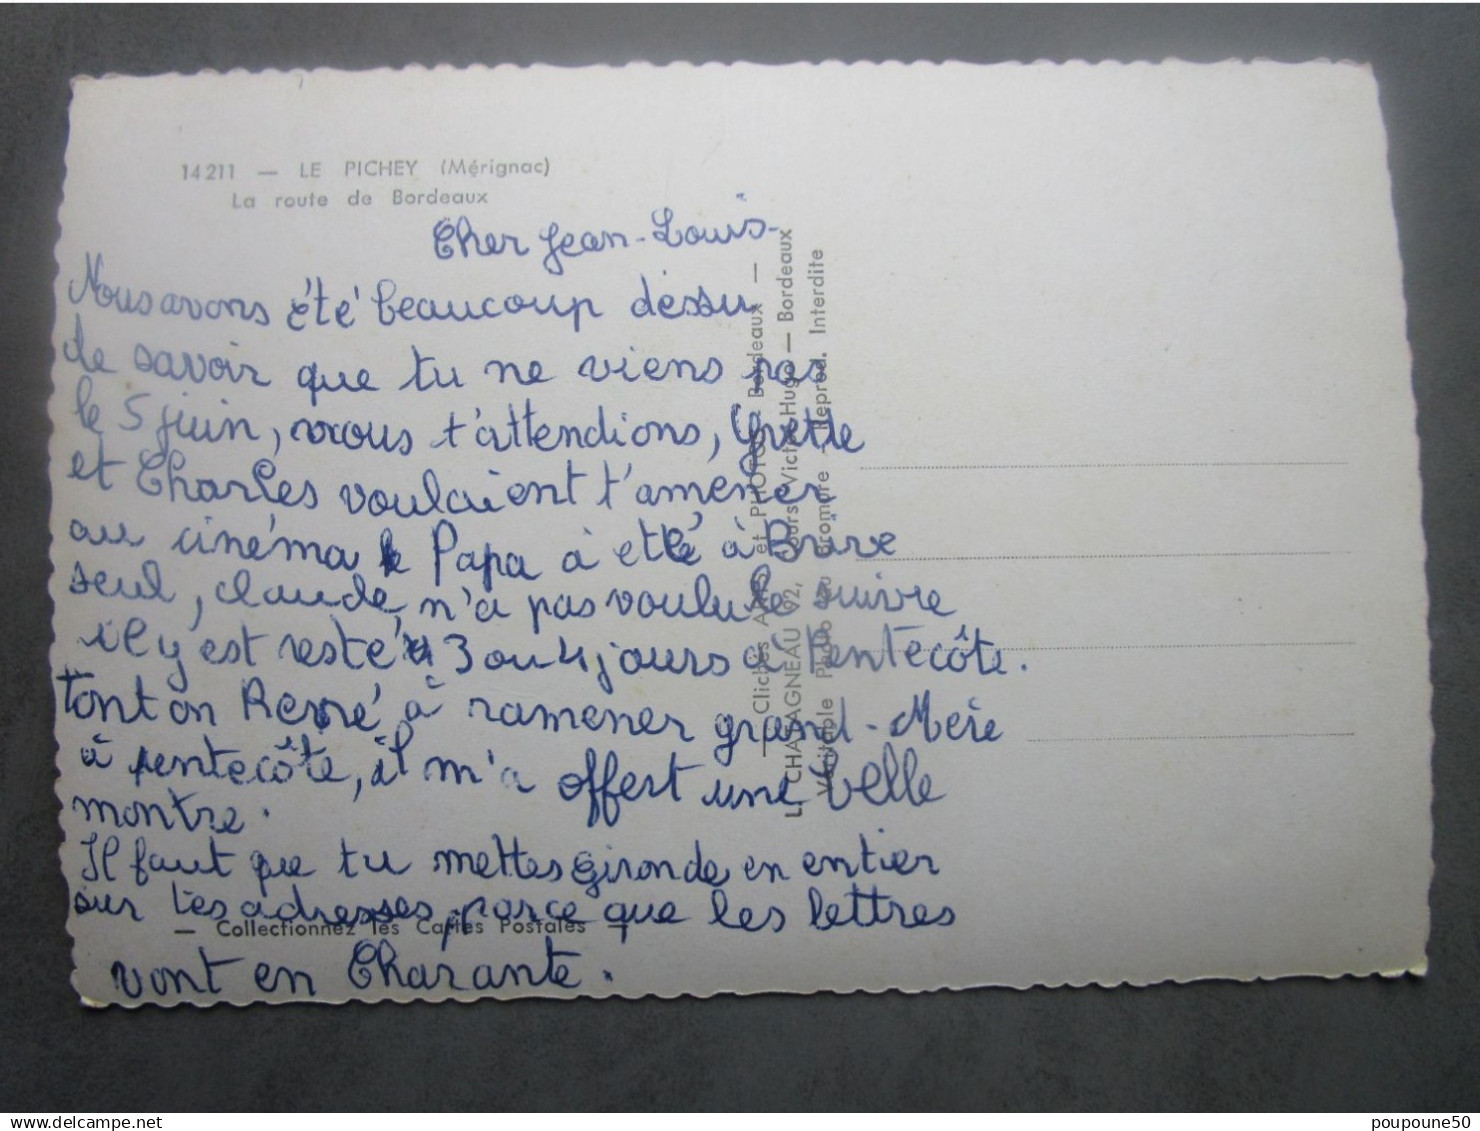 14211 — LE PICHEY (Mérignac)
La route de Bordeaux
Cher Jean-Louis-
Nous avons été beaucoup dessu
de savoir que tu ne viens pas
le 5 juin, nous t'attendions, Yvette
et Charles voulaient t'amener
au cinéma Papa à etté à Brive
seul, claude, n'a pas voulu le suivre
il y est resté 3 ou 4 jours à Pentecôte.
Tonton René à ramener grand-Mère
à pentecôte, il m'a offert une belle
montre.
Il faut que tu mettes gironde en entier
sur tes adresses, parce que les lettres
vont en Charante.
— Collectionnez les Cartes Postales —
— Clichés ARTS et PHOTOS — Bordeaux —
L. CHATAGNEAU 92, Cours Victor-Hugo — Bordeaux
Véritable Photo au Bromure — Reprod. Interdite
poupoune50